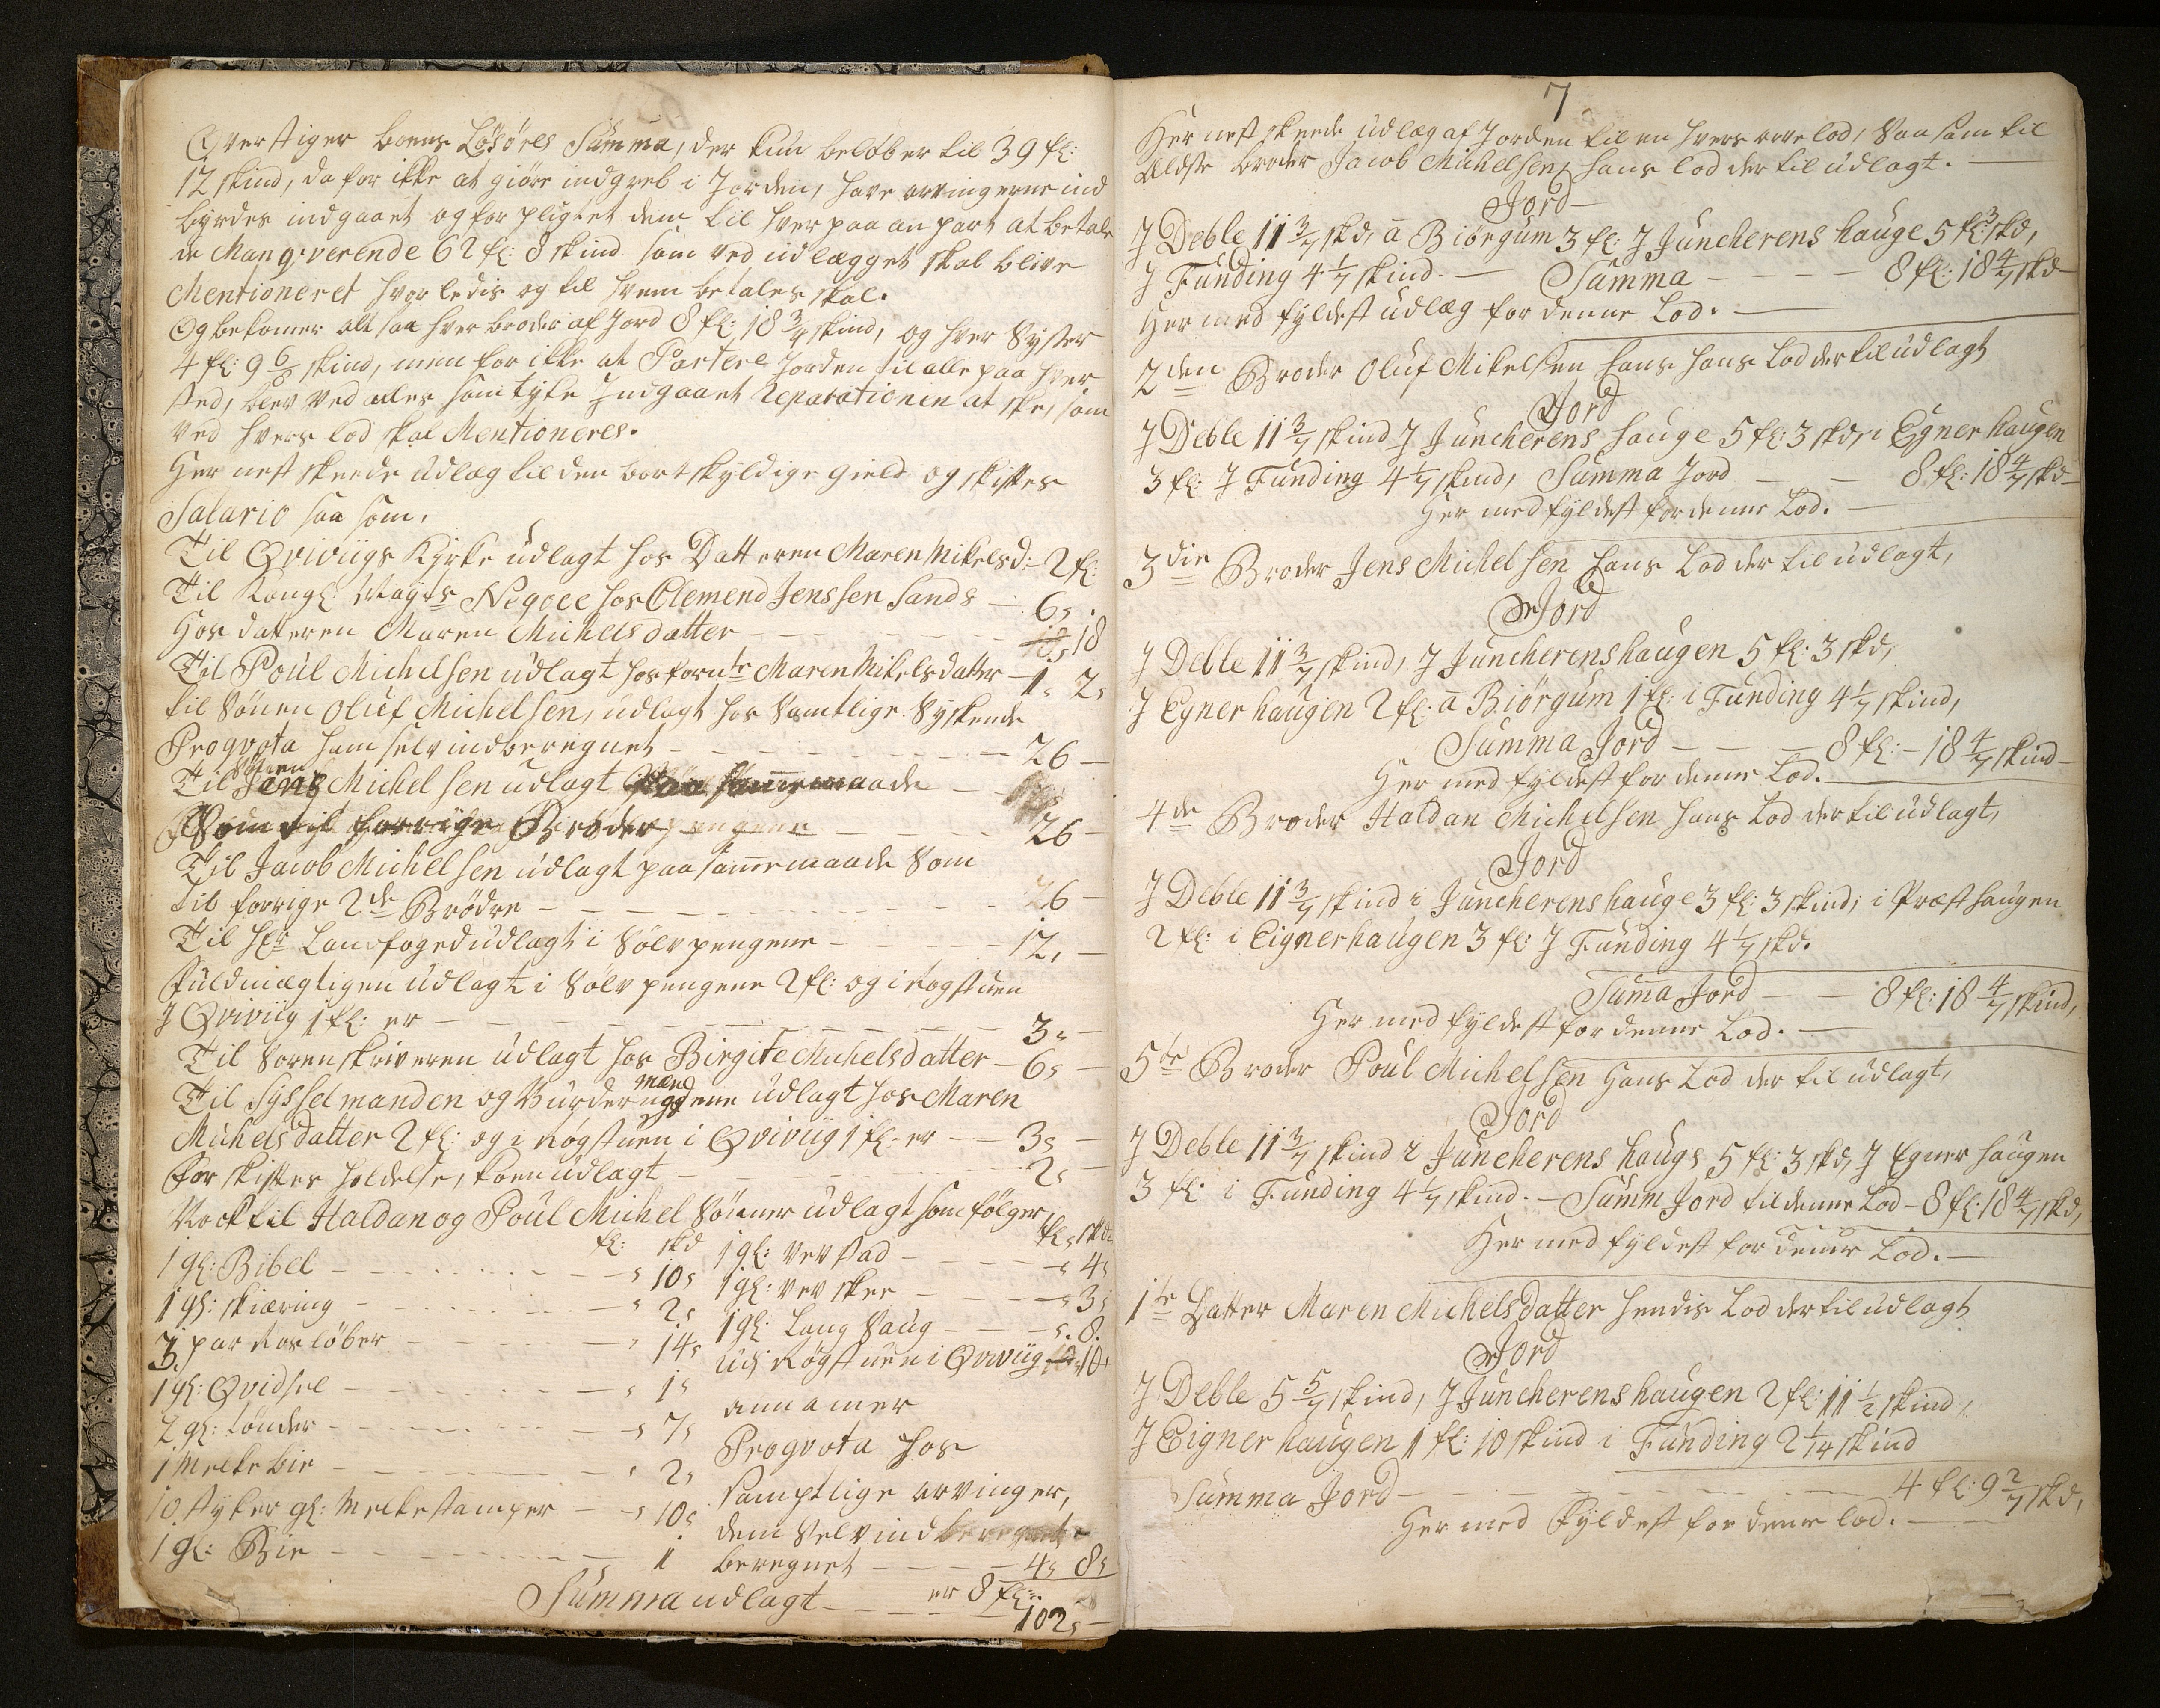 Overstiger boens Løsöres Summa, der kun beløber til 39 fl:
12 skind, da for ikke at giøre indgreb i Jorden, have arvingerne ind
byrdes indgaaet og forpligtet dem til hver paa an part at betale
de Mangverende 62 fl: 8 skind som ved udlægget skal blive
Mentioneret hvorledis og til hvem betales skal.
Og bekomer alt saa hver broder af Jord 8 fl: 18 3/4 skind, og hver Syster
4 fl: 9 6/8 skind, men for ikke at Partere Jorden til alle paa hver
sted, blev ved alles samtyke Indgaaet Reparationen at skee, som
ved hvers lod skal Mentioneres.
Her nest skeede udlæg til den bortskyldige gield og skiftes
Salario saa som,
Til Qviviigs Kyrke udlagt hos Datteren Maren Mikelsd: - 2 fl:
Til Kongl: Mayts Negoce hos Clemend Jenssen Sands - 6 s
Hos datteren Maren Michelsdatter - 18
Til Poul Michelsen udlagt hos fornte Maren Mikelsdatter - 1 s 2 s
til Sönen Oluf Michelsen, udlagt hos Samtlige Syskende
Proqvota ham selv indberegnet - 26 -
Til Sönen Jens Michelsen udlagt paa samemaade -
Som til forrige Broder pengene - 26 -
Til Jacob Michelsen udlagt paa samemaade Som
til forrige 2de Brödre - 26 -
Til Hr Landfoged udlagt i Sölvpengene - 12, -
Fuldmægtigen udlagt i Sölvpengene 2 fl: og i Rogstuen
J Qviviig 1 fl: er - 3 s -
Til Sorenskriveren udlagt hos Birgite Michelsdatter - 6 s -
mænd
Til Sysselmanden og Vurderings ene udlagt hos Maren
Michelsdatter 2 fl: og i Rögstuen i Qviviig 1 fl. er - 3 s -
For skiftes holdelse, koen udlagt - 2 s -
Nock til Haldan og Poul Michel Sönner udlagt som fölger,
fl: skd
1 gl: Bibel - s 10 s
1 gl: skiæring - s 2 s
3 par Roslöber - s 14 s
1 gl: Qvidsel - s 1 s
2 gl: tönder - s 7 s
1 Melkebie - s 2 s
10 styker gl: Melkestamper - s 10 s
1 gl: Bie - 1
fl s skd
1 gl: vevstad - s 4 s
1 gl: vev skee - s 3 s
1 gl: Lang Saug - s. 8.
udi Rögstuen i Qviviig 10
annamer
Proqvota hos
samptlige arvinger,
dem Selv ind
beregnet - 4 s 8 s
er 8 fl:
Summa udlagt - 102 s -
7
Her nest skeede udlæg af Jorden til en hvers arvelod, Saa som til
Eldste broder Jacob Michelsen, hans lod der til udlagt. -
Jord
J Deble 11 3/7 skd, a Biörgum 3 fl: J Juncherens hauge 5 fl: 3 skd,
J Funding 4 1/7 skind. - Summa - 8 fl: 18 4/7 skd
Her med fyldest udlæg for denne Lod. -
2den Broder Oluf Mikelsen hans Lod der til udlagt
Jord
J Deble 11 3/7 skind J Juncherens hauge 5 fl: 3 skd, i Egner haugen
3 fl: J Funding 4 1/7 skind, Summa Jord - 8 fl: 18 4/7 skd
Her med fyldest for denne Lod. -
3die Broder Jens Michelsen hans Lod der til udlagt,
Jord
J Deble 11 3/7 skind, J Juncherenshaugen 5 fl: 3 skd,
J Egner haugen 2 fl: a Biörgum 1 fl: i Funding 4 1/7 skind,
Summa Jord - 8 fl: - 18 4/7 skind
Her med fyldest for denne Lod. -
4de Broder Haldan Michelsen hans Lod der til udlagt,
Jord
J Deble 11 3/7 skind i Juncherenshauge 3 fl: 3 skind, i Præsthaugen
2 fl: i Eignerhaugen 3 fl: J Funding 4 1/7 skd.
Suma Jord - 8 fl: 18 4/7 skind,
Her med fyldest for denne Lod. -
5te Broder Poul Michelsen Hans Lod der til udlagt,
Jord
J Deble 11 3/7 skind i Juncherens haugs 5 fl: 3 skd, J Egner haugen
3 fl: i Funding 4 1/7 skind. - Summ Jord til denne Lod - 8 fl: 18 4/7 skd,
Her med fyldest for denne Lod. -
1te Datter Maren Michelsdatter hendis Lod der til udlagt
Jord
J Deble 5 5/7 skind, J Juncherenshaugen 2 fl: 11 1/2 skind,
J Eigner haugen 1 fl: 10 skind i Funding 2 1/14 skind
Summa Jord - 4 fl: 9 2/7 skd,
Her med Fyldest for denne lod. -